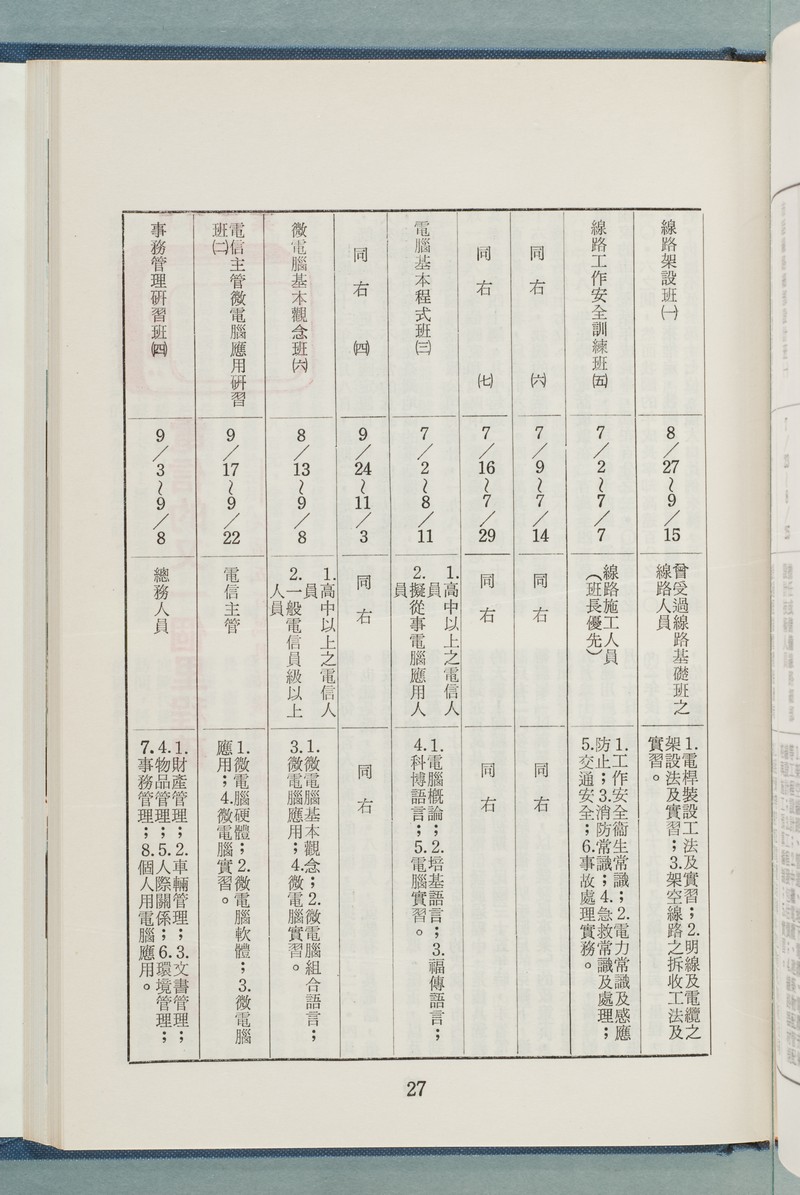 線路架設班㈠
8／27～9／15
曾受過線路基礎班之
線路人員
1.電桿裝設工法及實習；2.明線及電纜之
架設法及實習；3.架空線路之拆收工法及
實習。
線路工作安全訓練班㈤
7／2～7／7
線路施工人員
（班長優先）
1.工作安全衞生常識；2.電力常識及感應
防止；3.消防常識；4.急救常識及處理；
5.交通安全；6.事故處理實務。
同右 ㈥
7／9～7／14
同右
同右
同右 ㈦
7／16～7／29
同右
同右
電腦基本程式班㈢
7／2～8／11
1.高中以上之電信人
員
2.擬從事電腦應用人
員
1.電腦概論；2.培基語言；3.福傳語言；
4.科博語言；5.電腦實習。
同右 ㈣
9／24～11／3
同右
同右
微電腦基本觀念班㈥
8／13～9／8
1.高中以上之電信人
員
2.一般電信員級以上
人員
1.微電腦基本觀念；2.微電腦組合語言；
3.微電腦應用；4.微電腦實習。
電信主管微電腦應用研習
班㈡
9／17～9／22
電信主管
1.微電腦硬體；2.微電腦軟體；3.微電腦
應用；4.微電腦實習。
事務管理研習班㈣
9／3～9／8
總務人員
1.財產管理；2.車輛管理；3.文書管理；
4.物品管理；5.人際關係；6.環境管理；
7.事務管理；8.個人用電腦應用。
27